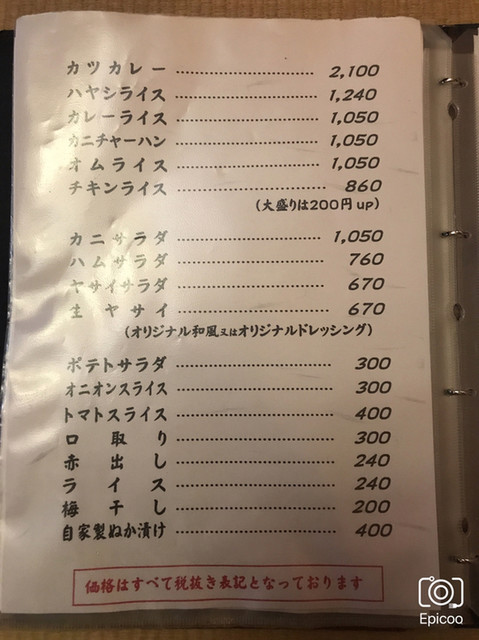 カツカレー ………… 2,100
ハヤシライス ………… 1,240
カレーライス ………… 1,050
カニチャーハン ………… 1,050
オムライス ………… 1,050
チキンライス ………… 860
(大盛りは200円up)
カニサラダ ………… 1,050
ハムサラダ ………… 760
ヤサイサラダ ………… 670
生ヤサイ ………… 670
(オリジナル和風又はオリジナルドレッシング)
ポテトサラダ ………… 300
オニオンスライス ………… 300
トマトスライス ………… 400
口取り ………… 300
赤出し ………… 240
ライス ………… 240
梅干し ………… 200
自家製ぬか漬け ………… 400
価格はすべて税抜き表記となっております
Epicoo